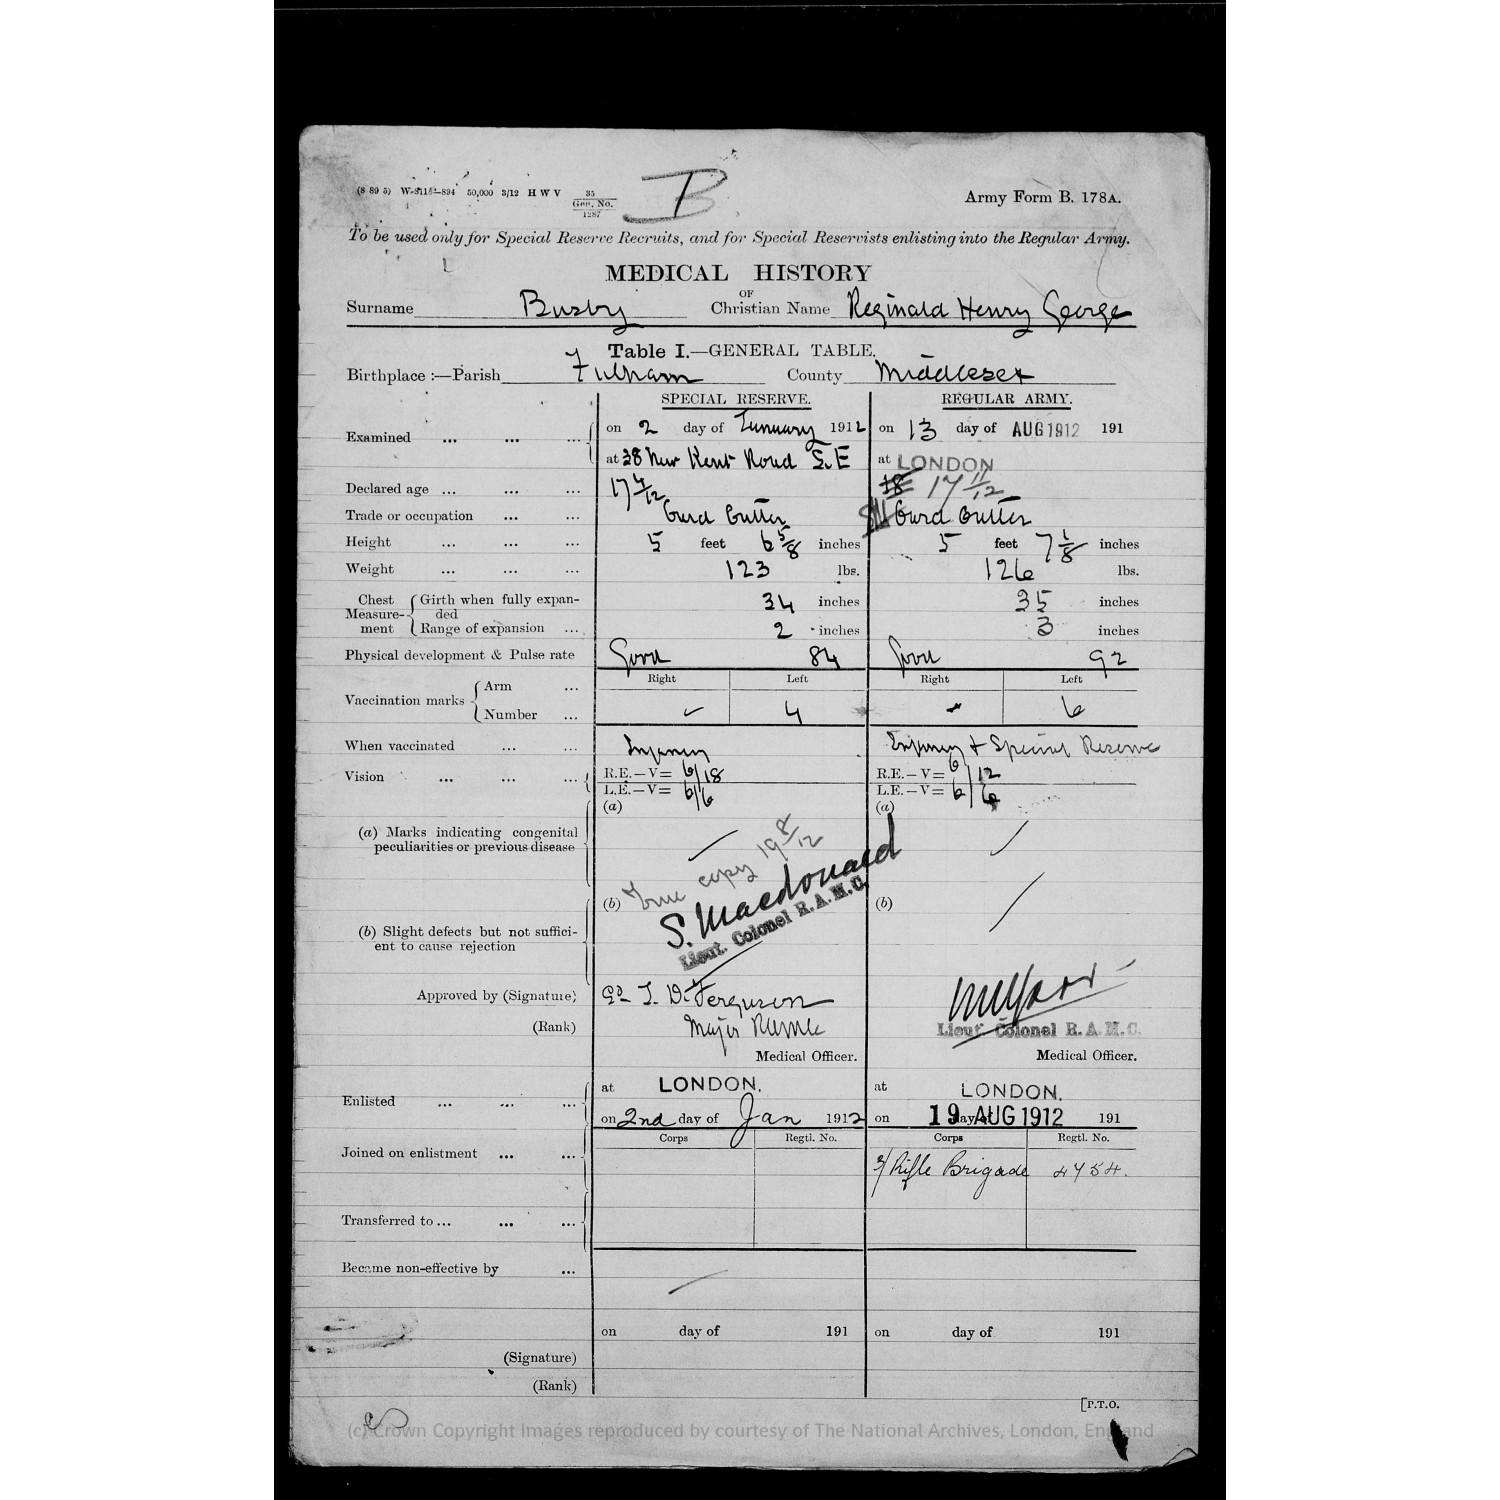 (8 89 5) W 8115—894 50,000 3/12 H W V 35
Gen. No.
1287
B
Army Form B. 178A.
To be used only for Special Reserve Recruits, and for Special Reservists enlisting into the Regular Army.
MEDICAL HISTORY
OF
Surname Busby Christian Name Reginald Henry George
Table I.—GENERAL TABLE.
Birthplace :—Parish Fulham County Middlesex
SPECIAL RESERVE. REGULAR ARMY.
Examined ... ... ... on 2 day of January 1912 on 13 day of AUG 1912 191
at 38 New Kent Road S.E at LONDON
Declared age ... ... ... 17 4/12 18 17 11/12
Trade or occupation ... ... Card Cutter Card Cutter
Height ... ... ... 5 feet 6 5/8 inches 5 feet 7 1/8 inches
Weight ... ... ... 123 lbs. 126 lbs.
Chest Measurement { Girth when fully expanded 34 inches 35 inches
Range of expansion ... 2 inches 3 inches
Physical development & Pulse rate Good 84 Good 92
Right Left Right Left
Vaccination marks { Arm ...
Number ... 4 6
When vaccinated ... ... Infancy Infancy & Special Reserve
Vision ... ... ... R.E.—V= 6/18 R.E.—V= 6/12
L.E.—V= 6/6 L.E.—V= 6/6
(a) (a)
(a) Marks indicating congenital
peculiarities or previous disease
True copy 19 8/12
S. Macdonald
Lieut. Colonel R.A.M.C.
(b) (b)
(b) Slight defects but not suffici-
ent to cause rejection
Approved by (Signature) Sd- J. D. Ferguson
(Rank) Major RAMC Lieut. Colonel R.A.M.C.
Medical Officer. Medical Officer.
at LONDON. at LONDON.
Enlisted ... ... ... on 2nd day of Jan 1912 on 19 day of AUG 1912 191
Corps Regtl. No. Corps Regtl. No.
Joined on enlistment ... ... 3/ Rifle Brigade 4754.
Transferred to ... ... ...
Became non-effective by ...
on day of 191 on day of 191
(Signature)
(Rank)
[P.T.O.
(c) Crown Copyright Images reproduced by courtesy of The National Archives, London, England